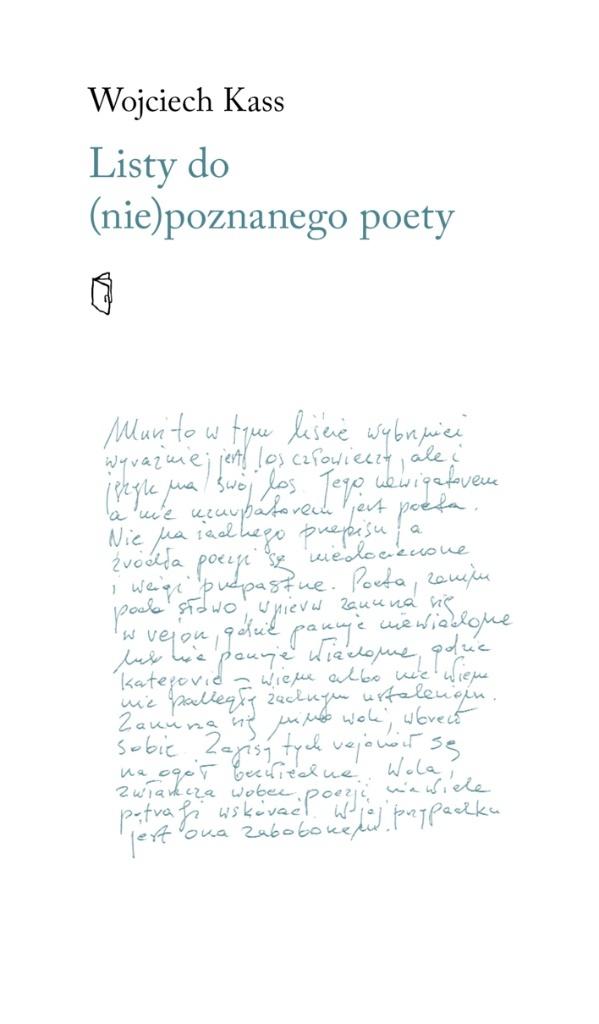 Wojciech Kass
Listy do
(nie)poznanego poety
w tym liście wybrzmieć
wyraźniej, jest los człowieczy, ale i
język ma swój los. Jego nawigatorem
a nie uzurpatorem jest poeta.
Nie ma żadnego przepisu, a
źródła poezji są niedocienione
i wciąż przepastne. Poeta, zanim
poda słowo, wpierw zanurza się
w rejon, gdzie panuje niewiadome
lub nie panuje wiadome, gdzie
kategorie – wiem albo nie wiem
nie podległy żadnym ustaleniom.
Zanurza się mimo woli, wbrew
sobie. Zapisy tych rejonów są
na ogół bezwiedne. Wola,
zwłaszcza wobec poezji niewiele
potrafi wskórać. W jej przypadku
jest ona zabobonem.